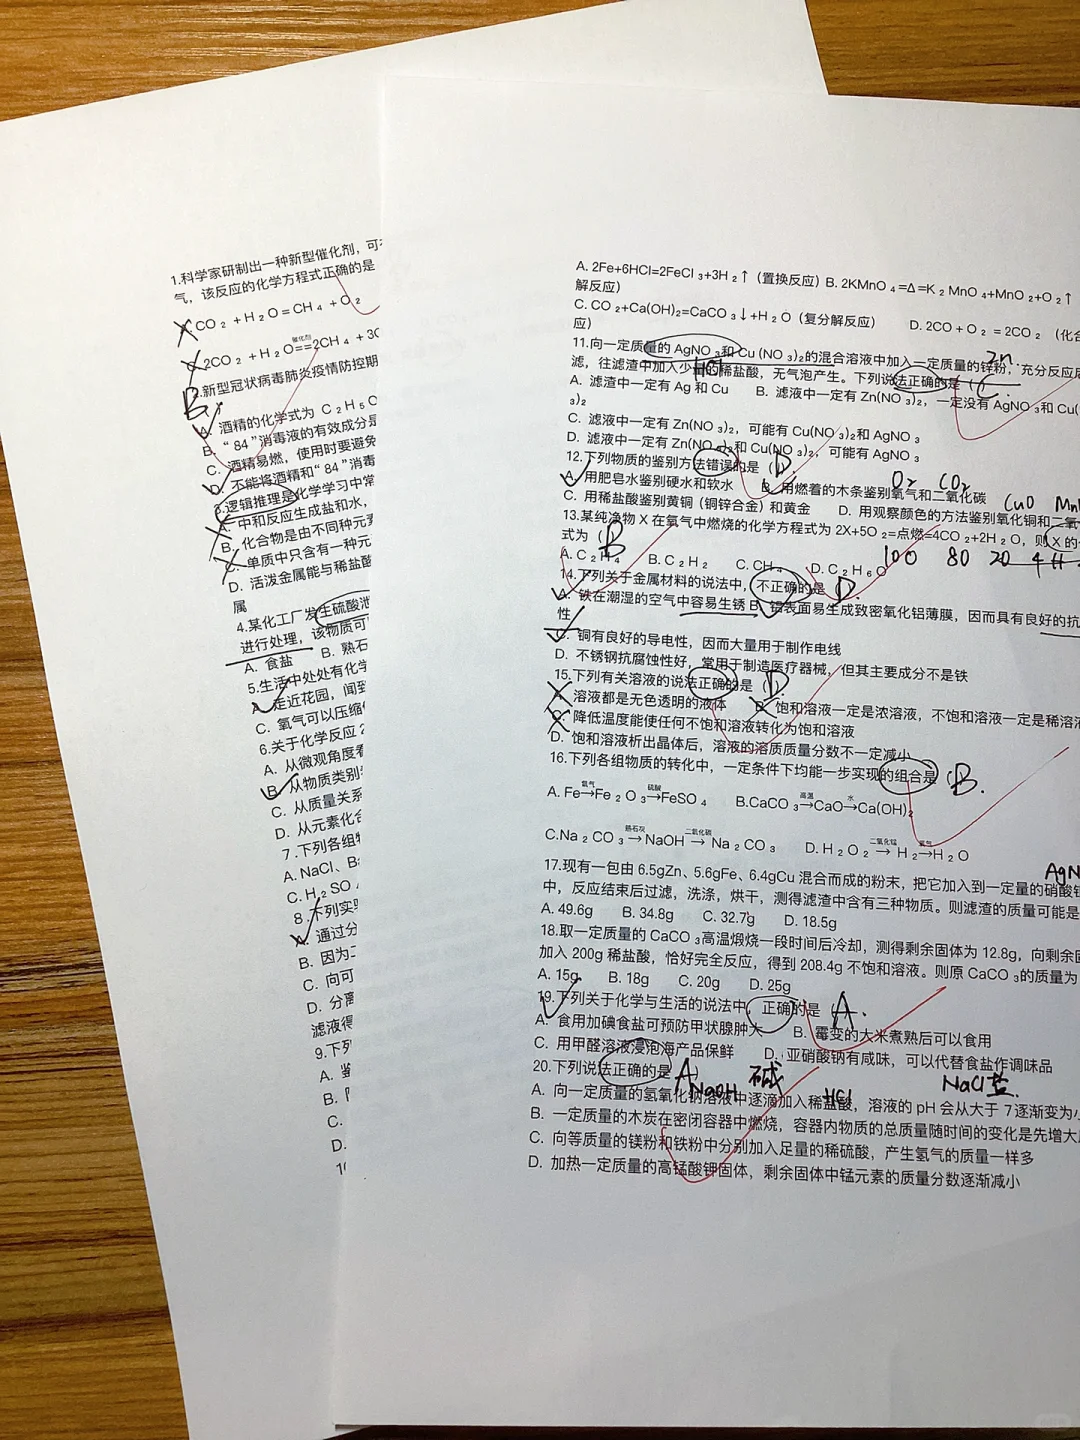 1.科学家研制出一种新型催化剂，可
气，该反应的化学方程式正确的是
CO 2 +H 2 O=CH 4 +O 2
催化剂
2CO 2 +H 2 O==2CH 4 +3
B
2.新型冠状病毒肺炎疫情防控期
A. 酒精的化学式为 C 2 H 5
B. “84”消毒液的有效成分是
C. 酒精易燃，使用时要避免
D. 不能将酒精和“84”消毒
3.逻辑推理是化学学习中常
A. 中和反应生成盐和水，
B. 化合物是由不同种元素
C. 单质中只含有一种元
D. 活泼金属能与稀盐酸
属
4.某化工厂发生硫酸泄
进行处理，该物质可
A. 食盐 B. 熟石
5.生活中处处有化学
A. 走近花园，闻到
C. 氧气可以压缩
6.关于化学反应
A. 从微观角度看
B. 从物质类别
C. 从质量关系
D. 从元素化合
7.下列各组
A. NaCl、Ba
C. H 2 SO 4
8.下列实
A. 通过分
B. 因为二
C. 向可
D. 分离
滤液得
9.下列
A. 鉴
B.
C.
D.
A. 2Fe+6HCl=2FeCl 3+3H 2↑（置换反应）B. 2KMnO 4 =Δ=K 2 MnO 4+MnO 2+O 2↑
解反应）
C. CO 2+Ca(OH)2=CaCO 3↓+H 2 O（复分解反应） D. 2CO+O 2 =2CO 2 （化合
应）
Zn
11.向一定质量的 AgNO 3和 Cu (NO 3)2的混合溶液中加入一定质量的锌粉，充分反应后
HCl
滤，往滤渣中加入少量的稀盐酸，无气泡产生。下列说法正确的是（ C
A. 滤渣中一定有 Ag 和 Cu B. 滤液中一定有 Zn(NO 3)2，一定没有 AgNO 3和 Cu(
3)2
C. 滤液中一定有 Zn(NO 3)2，可能有 Cu(NO 3)2和 AgNO 3
D. 滤液中一定有 Zn(NO 3)2和 Cu(NO 3)2，可能有 AgNO 3
12.下列物质的鉴别方法错误的是（ D
O2 CO2
A. 用肥皂水鉴别硬水和软水 B. 用燃着的木条鉴别氧气和二氧化碳
CuO Mn
C. 用稀盐酸鉴别黄铜（铜锌合金）和黄金 D. 用观察颜色的方法鉴别氧化铜和二氧
13.某纯净物 X 在氧气中燃烧的化学方程式为 2X+5O 2=点燃=4CO 2+2H 2 O，则 X 的
式为（ B
100 80 20 4H
A. C 2 H 4 B. C 2 H 2 C. CH 4 D. C 2 H 6 O
14.下列关于金属材料的说法中，不正确的是（ D
A. 铁在潮湿的空气中容易生锈 B. 铝表面易生成致密氧化铝薄膜，因而具有良好的抗
性
C. 铜有良好的导电性，因而大量用于制作电线
D. 不锈钢抗腐蚀性好，常用于制造医疗器械，但其主要成分不是铁
15.下列有关溶液的说法正确的是（ D
A. 溶液都是无色透明的液体 B. 饱和溶液一定是浓溶液，不饱和溶液一定是稀溶
C. 降低温度能使任何不饱和溶液转化为饱和溶液
D. 饱和溶液析出晶体后，溶液的溶质质量分数不一定减小
16.下列各组物质的转化中，一定条件下均能一步实现的组合是（ B.
A. Fe氧气→Fe 2 O 3硫酸→FeSO 4 B.CaCO 3高温→CaO水→Ca(OH)2
C.Na 2 CO 3熟石灰→NaOH二氧化碳→Na 2 CO 3 D. H 2 O 2二氧化锰→H 2氧气→H 2 O
AgN
17.现有一包由 6.5gZn、5.6gFe、6.4gCu 混合而成的粉末，把它加入到一定量的硝酸银
中，反应结束后过滤，洗涤，烘干，测得滤渣中含有三种物质。则滤渣的质量可能是
A. 49.6g B. 34.8g C. 32.7g D. 18.5g
18.取一定质量的 CaCO 3高温煅烧一段时间后冷却，测得剩余固体为 12.8g，向剩余固
加入 200g 稀盐酸，恰好完全反应，得到 208.4g 不饱和溶液。则原 CaCO 3的质量为
A. 15g B. 18g C. 20g D. 25g
19.下列关于化学与生活的说法中，正确的是（ A.
A. 食用加碘食盐可预防甲状腺肿大 B. 霉变的大米煮熟后可以食用
C. 用甲醛溶液浸泡海产品保鲜 D. 亚硝酸钠有咸味，可以代替食盐作调味品
20.下列说法正确的是 A ）
NaOH 碱 HCl NaCl 盐.
A. 向一定质量的氢氧化钠溶液中逐滴加入稀盐酸，溶液的 pH 会从大于 7 逐渐变为小
B. 一定质量的木炭在密闭容器中燃烧，容器内物质的总质量随时间的变化是先增大
C. 向等质量的镁粉和铁粉中分别加入足量的稀硫酸，产生氢气的质量一样多
D. 加热一定质量的高锰酸钾固体，剩余固体中锰元素的质量分数逐渐减小